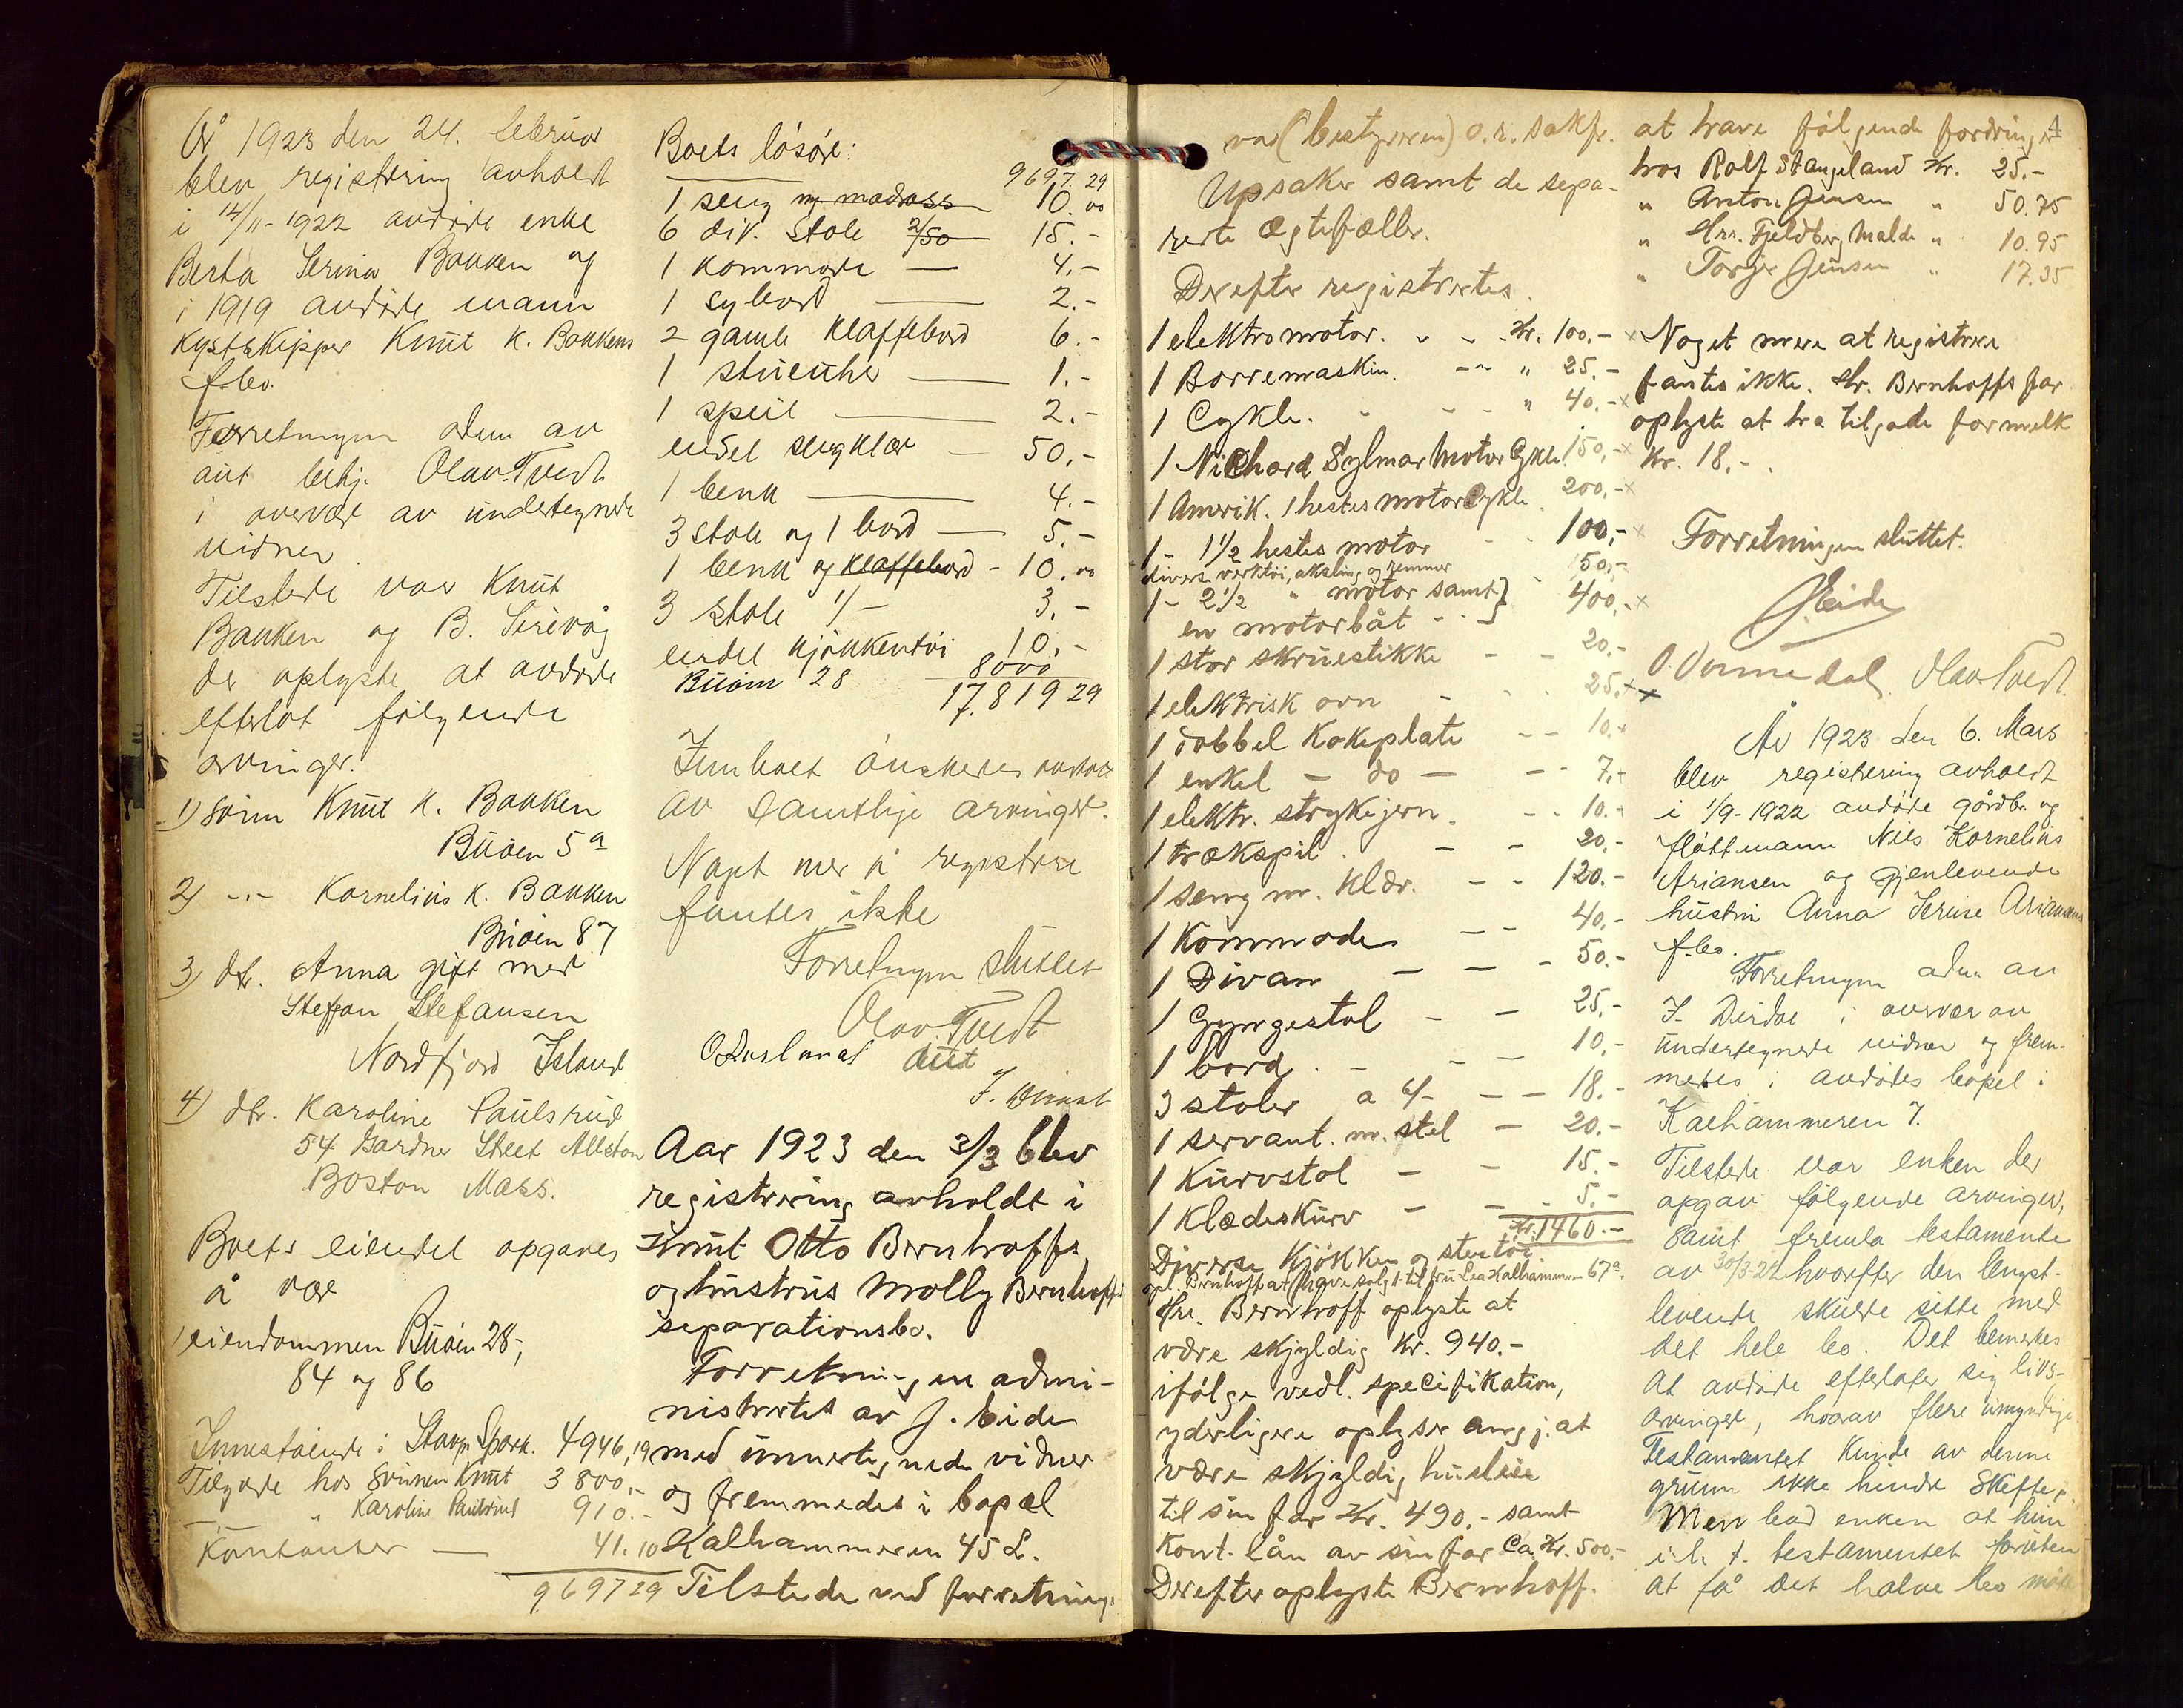 År 1923 den 24. februar
blev registrering avholdt
i 14/11-1922 avdøde enke
Berta Serina Bakken og
i 1919 avdøde mann
kystskipper Knut K. Bakkens
f.bo.
Forretningen adm av
aut. Olav Tvedt
i overvær av undertegnede
vidner
Tilstede var Knut
Bakken og B. Sirevåg
der oplyste at avdøde
efterlot følgende
arvinger.
1) sønn Knut K. Bakken
Buøen 5a
2) -"- Kornelius K. Bakken
Buøen 87
3) dtr. Anna gift med
Steffan Stefansen
Nordfjord Island
4) dtr. Karoline Paulsrud
54 Gardner Street Allston
Boston Mass.
Boets eiendel opgaves
å være
eiendommen Buøen 28,
84 og 86
Innestående i Stavgr. Spark. 4946,19
Tilgode hos sønnen Knut 3800,-
" Karoline Paulsrud 910.-
Kontanter — 41.10
9697 29
Boets løsøre:
9697.29
1 seng m madrass 10.00
6 div. stole 2/50 15.-
1 kommode — 4.-
1 sybord — 2.-
2 gamle klaffebord 6.-
1 stueuhr — 1.-
1 speil — 2.-
endel sengklær — 50.-
1 benk — 4.-
3 stole og 1 bord — 5.-
1 benk og klaffebord - 10.00
3 stole 1/- 3.-
endel kjøkkentøi 10.-
Buøen 28 8000
17.819 29
Innboet ønskedes
av samtlige arvinger.
Noget mer å registrere
fantes ikke
Forretningen sluttet
Olav Tvedt
aut
Aar 1923 den 3/3 blev
registrering avholdt i
Knut Otto Bernhoffs
og hustrus Molly Bernhoffs
separationsbo.
Forretningen admi-
nistrertes av J. Eide
med unnertegnede vidner
og fremmedes i bopæl
Kalhammeren 45 L.
Tilstede ved forretning-
var (bestyreren) o.r. sakfr.
Upsaker samt de sepa-
rerte Ægtefæller.
Derefter registrertes.
1 elektromotor. - - Kr. 100.- x
1 Borremaskin. - - " 25.-
1 Cykle. - - " 40.- x
1 Nichard Sylmar Motor Cykle 150,- x
1 Amerik. 1 hestes motorcykle 200,- x
1 - 1 1/2 hestes motor - - 100,- x
divers verktøi, aksling og remmer 50,-
1 - 2 1/2 " motor samt } 400,- x
en motorbåt - -
1 stor skruestikke - - 20.-
1 elektrisk ovn - - 25.- x
1 dobbel Kokeplate - - 10.-
1 enkel - do - - - 7.-
1 elektr. strykejern. - - 10.-
1 trækspil. - - 20.-
1 seng m. klær. - - 120.-
1 Kommode - - 40,-
1 Divan - - - 50.-
1 Gyngestol - - 25,-
1 bord. - - - 10,-
3 stoler a 6/- - - 18.-
1 servant. m. stel - 20.-
1 Kurvstol - - 15.-
1 Klædeskurv - - 5.-
Kr. 1460.-
Diverse Kjøkken og stentøi
opl. Bernhoff at have solgt til fru Lea Kalhammeren 67a.
Hr. Bernhoff oplyste at
være skyldig Kr. 940.-
ifølge vedl. specifikation,
yderligere oplyser angj. at
være skyldig husleie
til sin far Kr. 490.- samt
Kont. lån av sin far Ca. Kr. 500.-
Derefter oplyste Bernhoff.
4
at have følgende fordringer
hos Rolf Stangeland Kr. 25.-
" Anton Jensen " 50.75
" Hrr. Fjeldberg Malde " 10.95
" Torger Jensen " 17.35
Noget mere at registrere
fantes ikke. Hr. Bernhoffs far
oplyste at ha tilgode for melk
Kr. 18.-.
Forretningen sluttet.
J. Eide
O. Vormedal. Olav Tvedt.
År 1923 den 6. Mars
blev registrering avholdt
i 1/9-1922 avdøde gårdbr. og
fløttmann Nils Kornelius
Ariansen og gjenlevende
hustru Anna Serine Ariansens
f.bo.
Forretningen adm av
i overvær av
undertegnede vidner og frem-
medes i avdødes bopel i
Kalhammeren 7.
Tilstede var enken der
opgav følgende arvinger,
samt fremla testamente
av 30/3-22 hvorefter den lengst-
levende skulde sitte med
det hele bo. Det bemerkes
at avdøde efterlater sig livs-
arvinger, hvorav flere umyndige.
Testamentet kunde av denne
grunn ikke hindre Skifte.
Men bad enken at hun
i h. t. testamentet foruten
at få det halve bo måtte